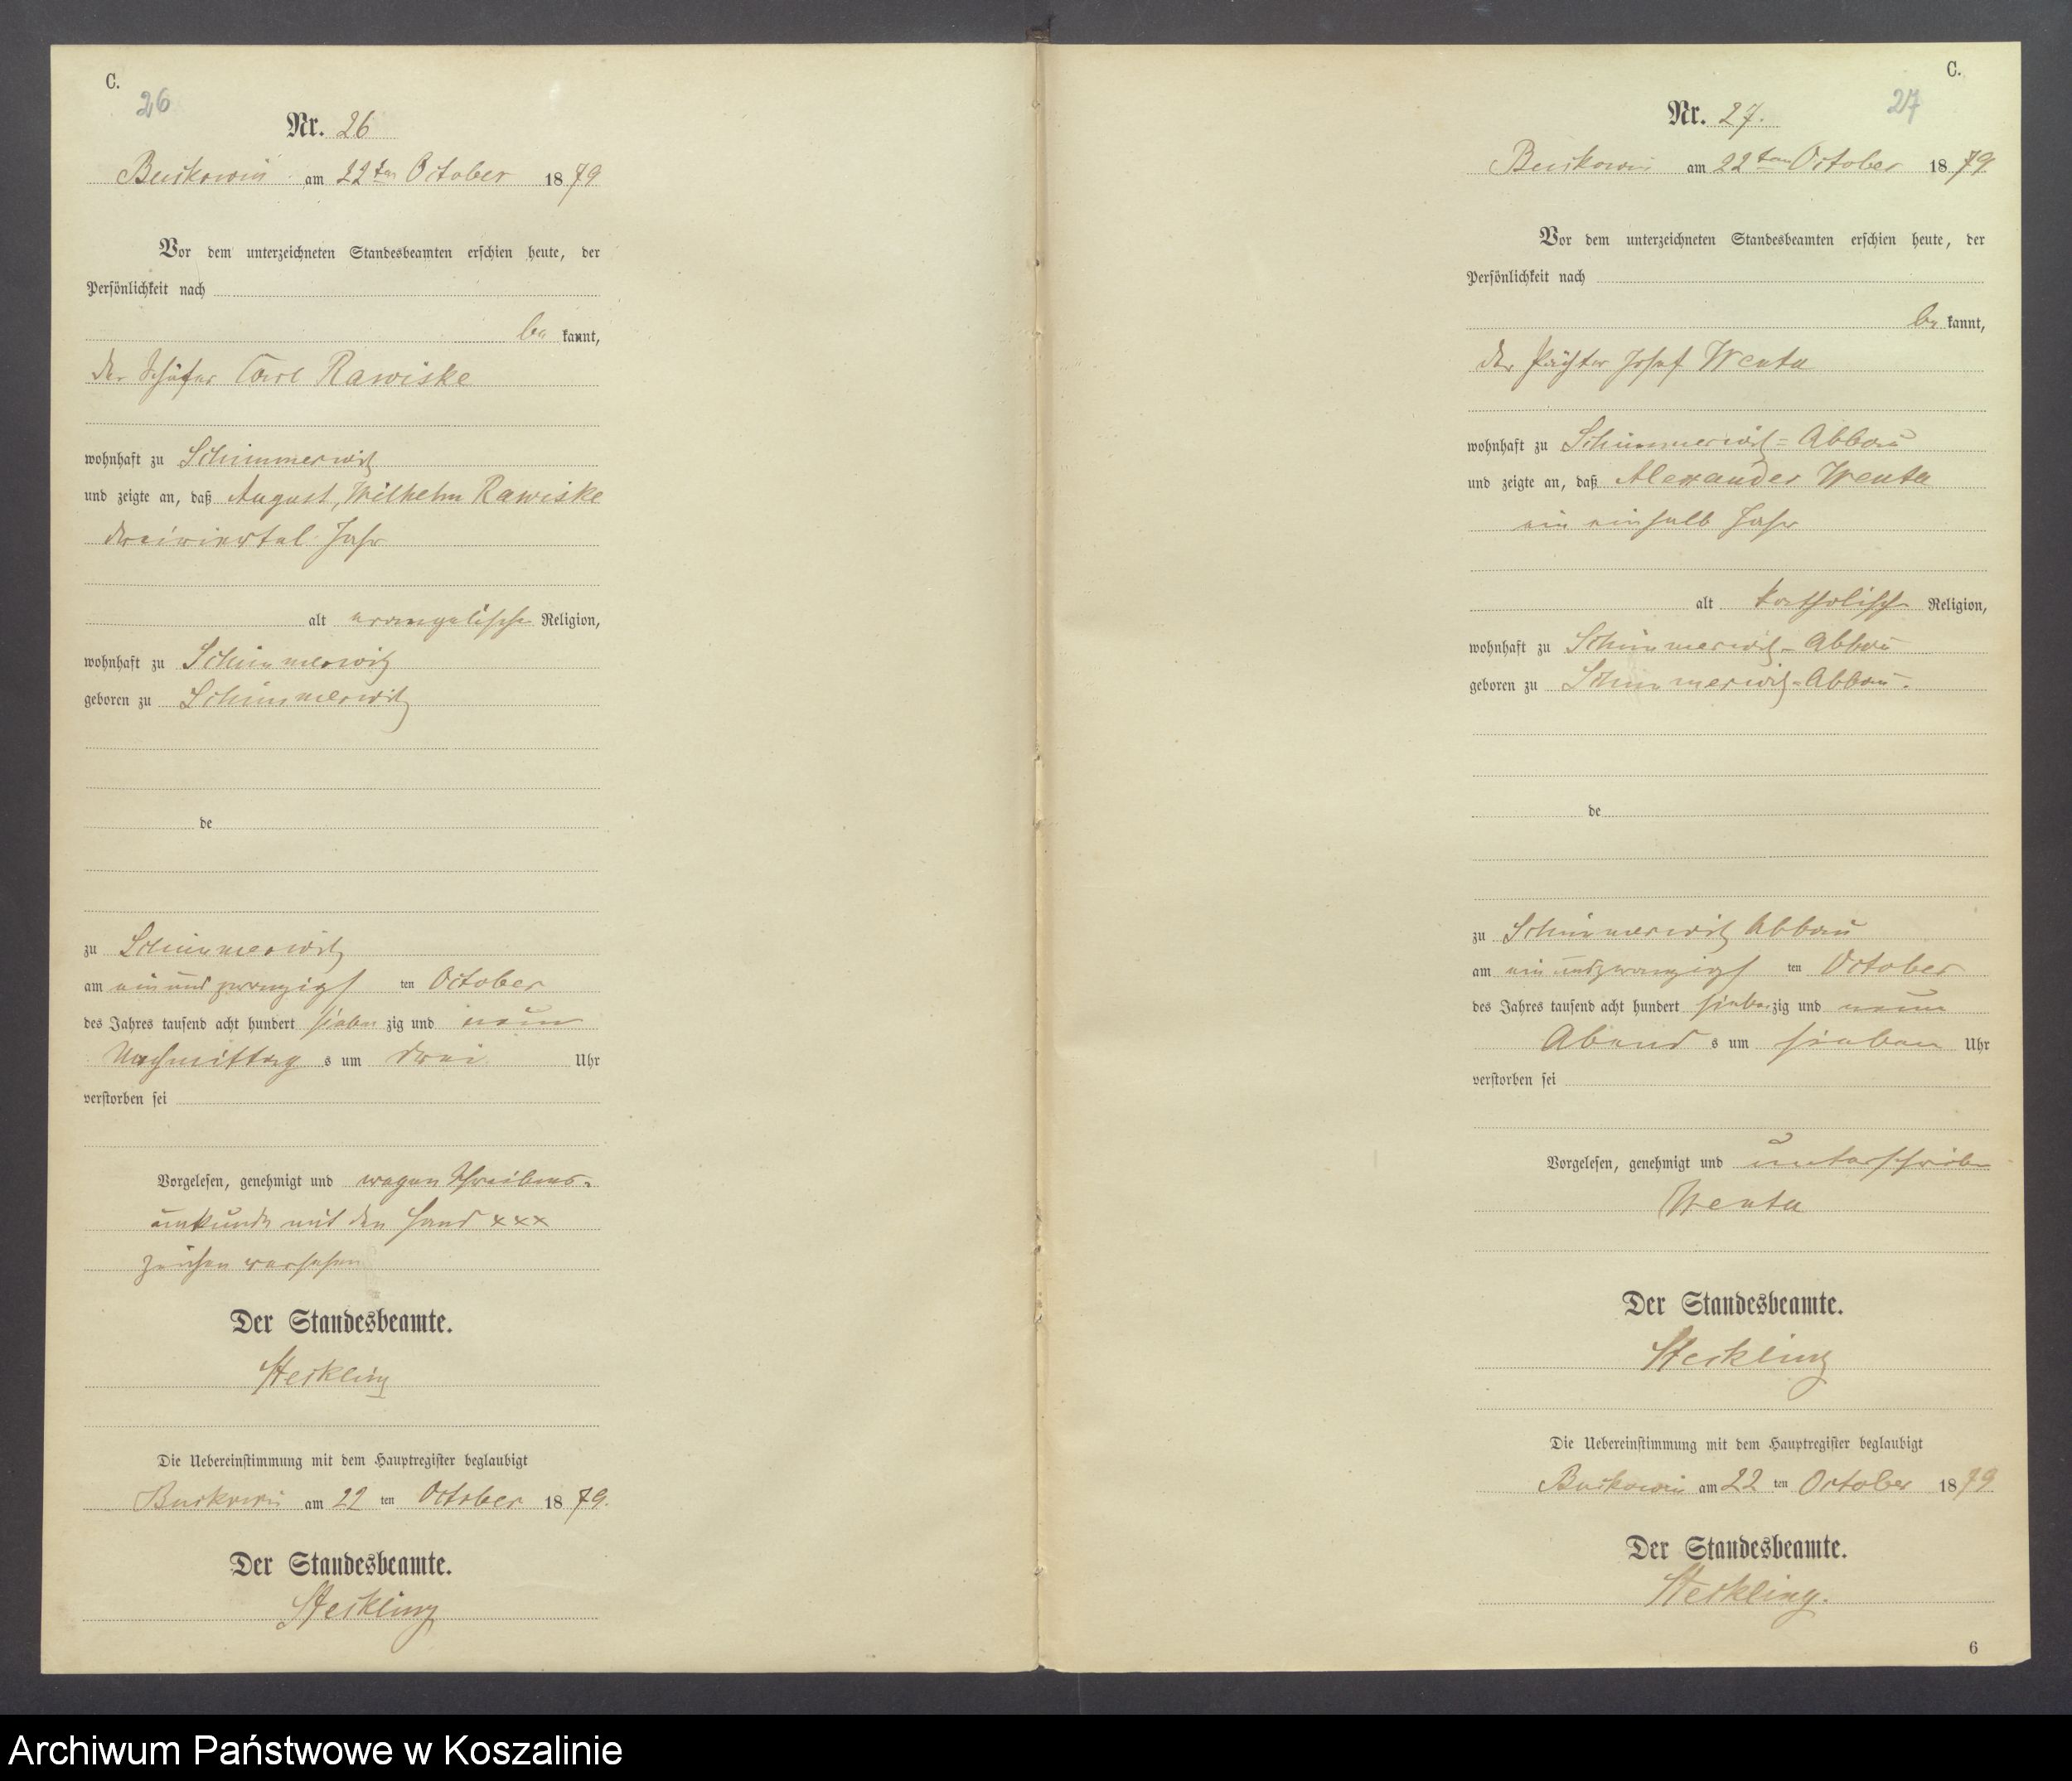 C.
26
Nr. 26
Buckowin am 22ten October 1879
Vor dem unterzeichneten Standesbeamten erschien heute, der
Persönlichkeit nach
be kannt,
der Schäfer Carl Rawiske
wohnhaft zu Schimmerwitz
und zeigte an, daß August, Wilhelm Rawiske
dreiviertel Jahr
alt evangelische Religion,
wohnhaft zu Schimmerwitz
geboren zu Schimmerwitz
de
zu Schimmerwitz
am einundzwanzigs ten October
des Jahres tausend acht hundert sieben zig und neun
Nachmittag s um drei Uhr
verstorben sei
Vorgelesen, genehmigt und wegen Schreibens-
unkunde mit den Hand xxx
zeichen versehen
Der Standesbeamte.
Steckling
Die Uebereinstimmung mit dem Hauptregister beglaubigt
Buckowin am 22 ten October 1879.
Der Standesbeamte.
Steckling
C.
27
Nr. 27.
Buckowin am 22ten October 1879
Vor dem unterzeichneten Standesbeamten erschien heute, der
Persönlichkeit nach
be kannt,
der Pächter Josef Wenta
wohnhaft zu Schimmerwitz-Abbau
und zeigte an, daß Alexander Wenta
ein einhalb Jahr
alt katholische Religion,
wohnhaft zu Schimmerwitz-Abbau
geboren zu Schimmerwitz-Abbau.
de
zu Schimmerwitz Abbau
am einundzwanzigs ten October
des Jahres tausend acht hundert sieben zig und neun
Abend s um sieben Uhr
verstorben sei
Vorgelesen, genehmigt und unterschrieben
Wenta
Der Standesbeamte.
Steckling
Die Uebereinstimmung mit dem Hauptregister beglaubigt
Buckowin am 22 ten October 1879
Der Standesbeamte.
Steckling.
6
Archiwum Państwowe w Koszalinie